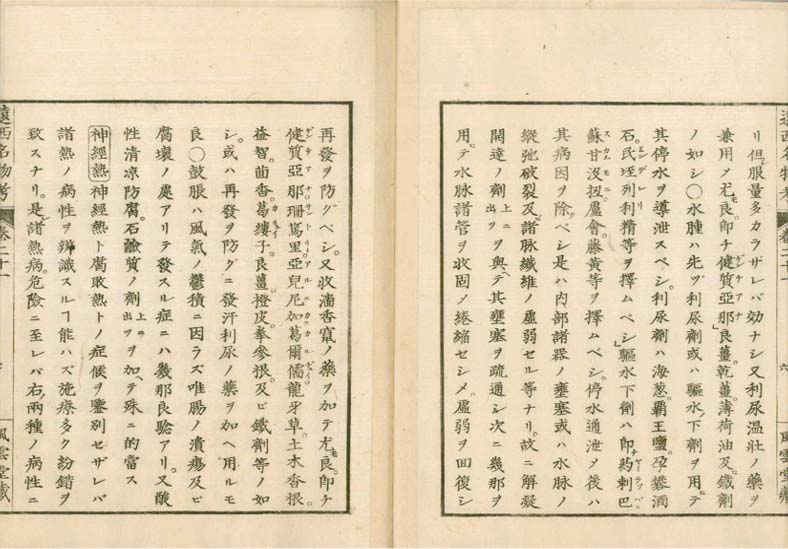 リ但服量多カラザレバ効ナシ又利尿温壮ノ藥ヲ
兼用メ尤良即チ健質亞那良薑乾薑薄荷油及鐵劑
ノ如シ〇水腫ハ先ヅ利尿劑或ハ驅水下劑ヲ用テ
其停水ヲ導泄スベシ利尿劑ハ海葱覇王鹽孕礬酒
石民垤列利精等ヲ擇ムベシ驅水下劑ハ即葯剌巴
蘇甘没扭蘆會藤黄等ヲ擇ムベシ停水通泄メ後ハ
其病因ヲ除ベシ是ハ内部諸器ノ壅塞或ハ水脉ノ
縦弛破裂及諸脉纖維ノ虚弱セル等ナリ故ニ解凝
開達ノ劑上ニ出ヲ與テ其壅塞ヲ疏通シ次ニ幾那ヲ
用テ水脉諸管ヲ收固ノ綣縮セシメ虚弱ヲ回復シ
遠西名物考
卷二十一
六
風雲堂藏
再發ヲ防グベシ又收濇香竄ノ藥ヲ加テ尤良即チ
健質亞那珊篤里亞兒尼加葛爾儒龍牙草土木香根
益智茴香葛縷子良薑橙皮拳參根及ビ鐵劑等ノ如
シ或ハ再發ヲ防グニ發汗利尿ノ藥ヲ加ヘ用ルモ
良〇鼓脹ハ風氣ノ鬱積ニ因ラズ唯腸ノ潰瘍及ビ
腐壊ノ處アリテ發スル症ニハ幾那良驗アリ又酸
性清凉防腐石鹼質ノ劑上ニ出ヲ加テ殊ニ的當ス
神經熱神經熱ト腐敗熱トノ症候ヲ鑒別セザレバ
諸熱ノ病性ヲ辨識スルヿ能ハズ施療多ク紛錯ヲ
致スナリ是諸熱病危險ニ至レバ右兩種ノ病性ニ
遠西名物考
卷二十一
風雲堂藏